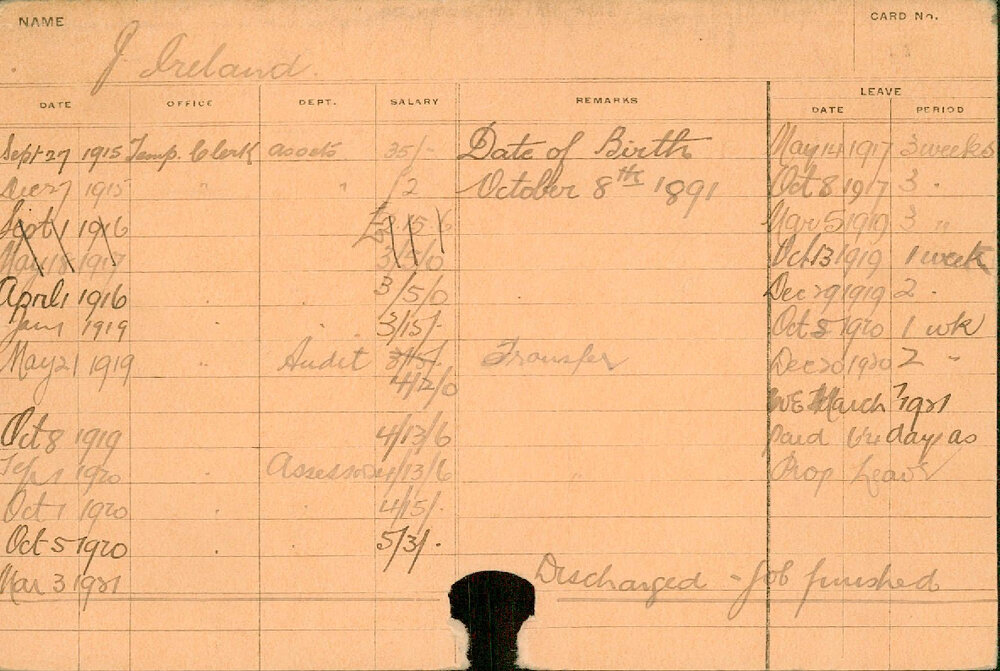 NAME
CARD No.
J Ireland.
LEAVE
DATE OFFICE DEPT. SALARY REMARKS DATE PERIOD
Sept 27 1915 Temp. Clerk assets 35/- Date of Birth May 14 1917 3 weeks
Dec 27 1915 " " /2 October 8th 1891 Oct 8 1917 3 "
Sept 1 1916 £2.15.6 Mar 5 1919 3 "
May 18 1917 3/5/0 Oct 13 1919 1 week
April 1 1916 " 3/5/0 Dec 29 1919 2 "
Jan 1 1919 " 3/15/- Oct 5 1920 1 wk
May 21 1919 " Audit 3/15/- Transfer Dec 20 1920 2 "
4/12/0
WE March 1921
Oct 8 1919 4/13/6 Paid day as
Sept 1 1920 " Assessor 4/13/6 " Prop Leave
Oct 1 1920 " 4/15/-
Oct 5 1920 " 5/3/-
Mar 3 1921 Discharged - job finished